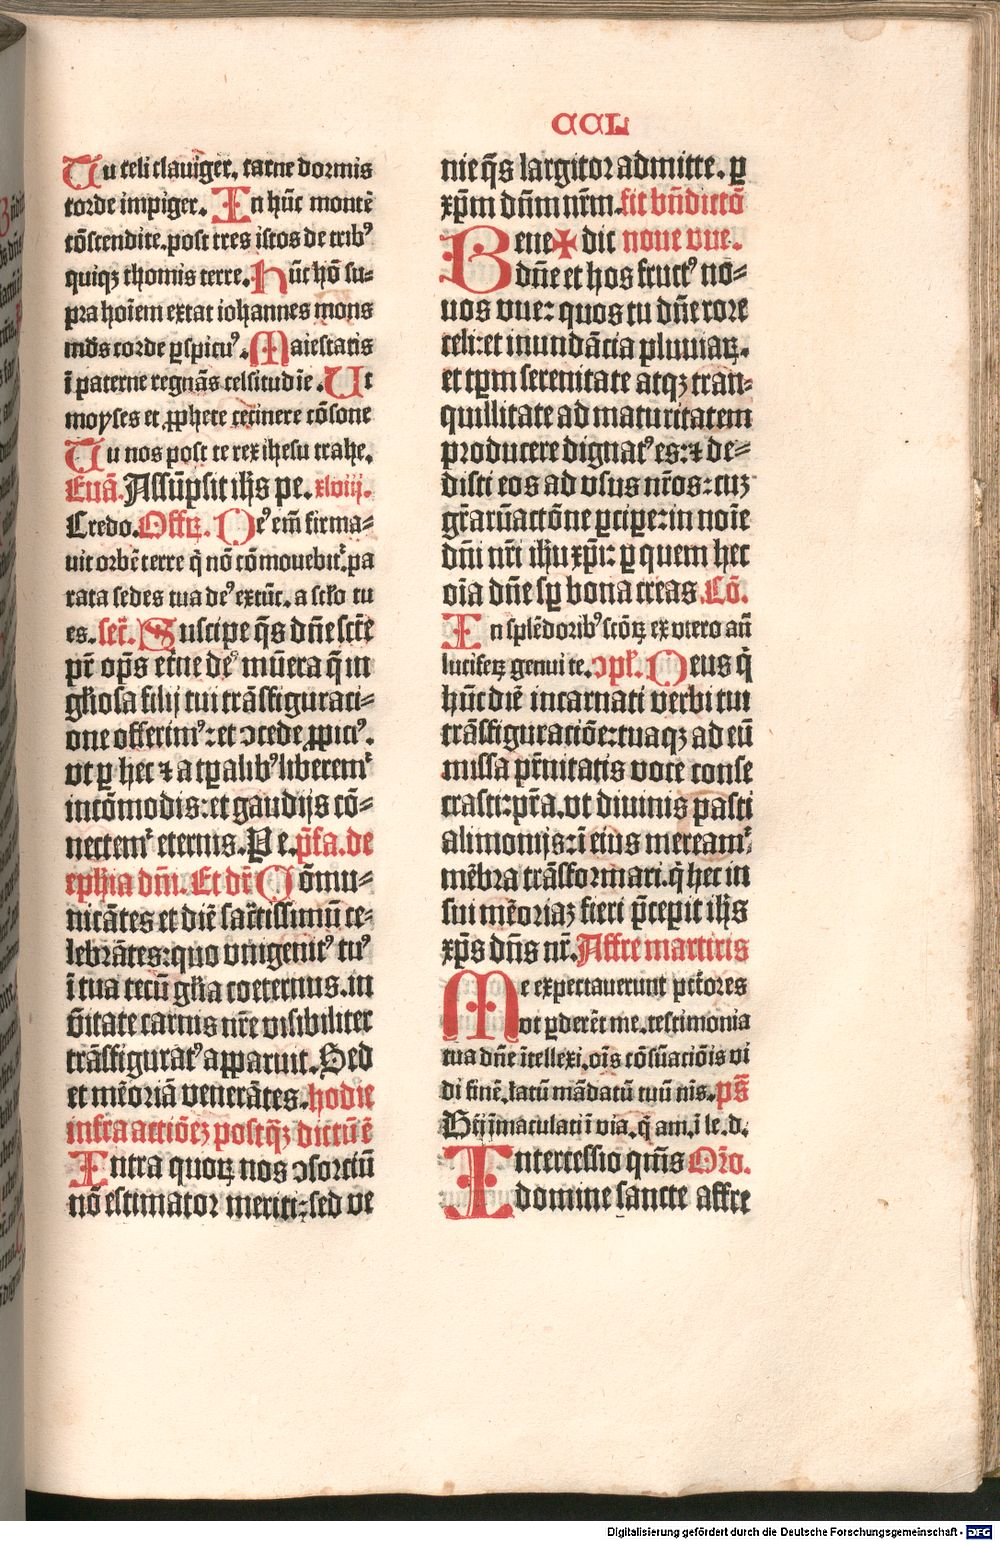 CCL
Tu celi clauiger, carne dormis
corde impiger. In hūc montē
cōscendite. post tres istos de tribꝰ
quiqꝫ thomis terre. Hūc hō su-
pra hoīem extat iohannes mons
mūdꝰ corde ꝑspicuꝰ. Maiestatis
ī paterne regnās celsitudīe. Ut
moyses et ꝓphete cecinere cōsone
Tu nos post te rex ihesu trahe.
Euā. Assūpsit ih̄s pe. xlviij.
Credo. Offꝝ. Deꝰ em̄ firma-
uit orbē terre q̄ nō cōmouebit᷑. pa
rata sedes tua deꝰ extūc. a sclo tu
es. Secr̄. Suscipe q̄s dn̄e sctē
pr̄ op̄s et̄ne deꝰ mūera q̄ in
gl̓iosa filij tui trāsfiguraci-
one offerimꝰ: et ↄcede ꝓpiciꝰ.
vt ꝑ hec ⁊ a tp̄alibꝰ liberem᷑
incōmodis: et gaudijs cō-
nectem᷑ eternis. Ꝑ e. p̄fa. de
eph̓ia dn̄i. Et dr̄ Cōmu-
nicātes et diē sacr̄tissimū ce-
lebrātes: quo vnigenitꝰ tuꝰ
ī tua tecū gl̓ia coeternus. in
v̄itate carnis nr̄e visibiliter
trāsfiguratꝰ apparuit. Sed
et mēoriā venerātes. hodie
infra actiōeꝫ postq̄ꝫ dictū ē
Intra quoꝝ nos ↄsorciū
nō estimator meriti: sed ve
nie q̄s largitor admitte. ꝑ
xp̄m dn̄m nr̄m. fit bn̄dictō
Bene ✠ dic noue vue.
dn̄e et hos fructꝰ no-
uos vue: quos tu dn̄e rore
celi: et inundācia pluuiaꝝ.
et tp̄m serenitate atqꝫ tran-
quillitate ad maturitatem
producere dignatꝰ es: ⁊ de-
disti eos ad vsus nr̄os: cuꝫ
gr̄aꝝ actōne ꝑcipe: in noīe
dn̄i nr̄i ih̓u xp̄i: ꝑ quem hec
oīa dn̄e sꝑ bona creas. Cō.
In splēdoribꝰ scōꝝ ex vtero an̄
luciferꝝ genui te. ↄpl̓. Deus q̄
hūc diē incarnati verbi tui
trāsfiguraciōe: tuaqꝫ ad eū
missa pr̄nitatis voce conse
crasti: pr̄a. vt diuinis pasti
alimonijs: ī eius meream᷑
mēbra trāsformari. q̄ hec in
sui mēoriaꝫ fieri p̄cepit ih̄s
xp̄s dn̄s nr̄. Affre martiris
Me expectauerunt pctōres
vt ꝑderēt me. testimonia
tua dn̄e ītellexi. oīs cōsūaciōis vi
di finē. latū mādatū tuū nīs. pš
Bt̄i īmaculati ī via. q̄ am. ī le. d.
Intercessio qm̄s Orō.
domine sancte affre
Digitalisierung gefördert durch die Deutsche Forschungsgemeinschaft - DFG